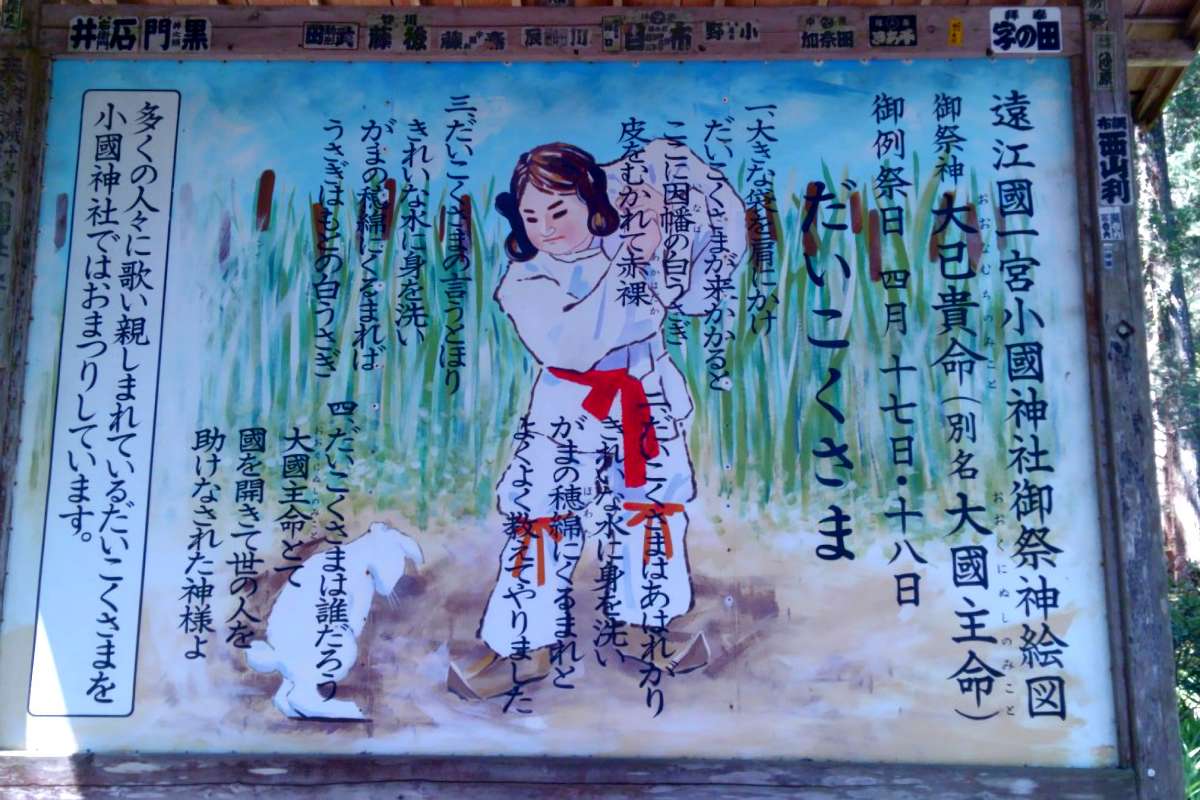 遠江國一宮小國神社御祭神絵図
御祭神 大己貴命(別名 大國主命)
おおなむちのみこと
おおくにぬしのみこと
御例祭日 四月 十七日・十八日
だいこくさま
一、大きな袋を肩にかけ
だいこくさまが来かかると
ここに因幡の白うさぎ
いなば
皮をむかれて赤裸
あかはだか
二、だいこくさまはあはれがり
きれいな水に身を洗い
がまの穂綿にくるまれと
ほわた
よくよく教えてやりました
三、だいこくさまの言うとほり
きれいな水に身を洗い
がまの穂綿にくるまれば
うさぎはもとの白うさぎ
四、だいこくさまは誰だろう
大國主命とて
おおくにぬしのみこと
國を開きて世の人を
助けなされた神様よ
多くの人々に歌い親しまれているだいこくさまを
小國神社ではおまつりしています。
田の字
小野
布目
加奈田
後藤
黒門
石井
西山利